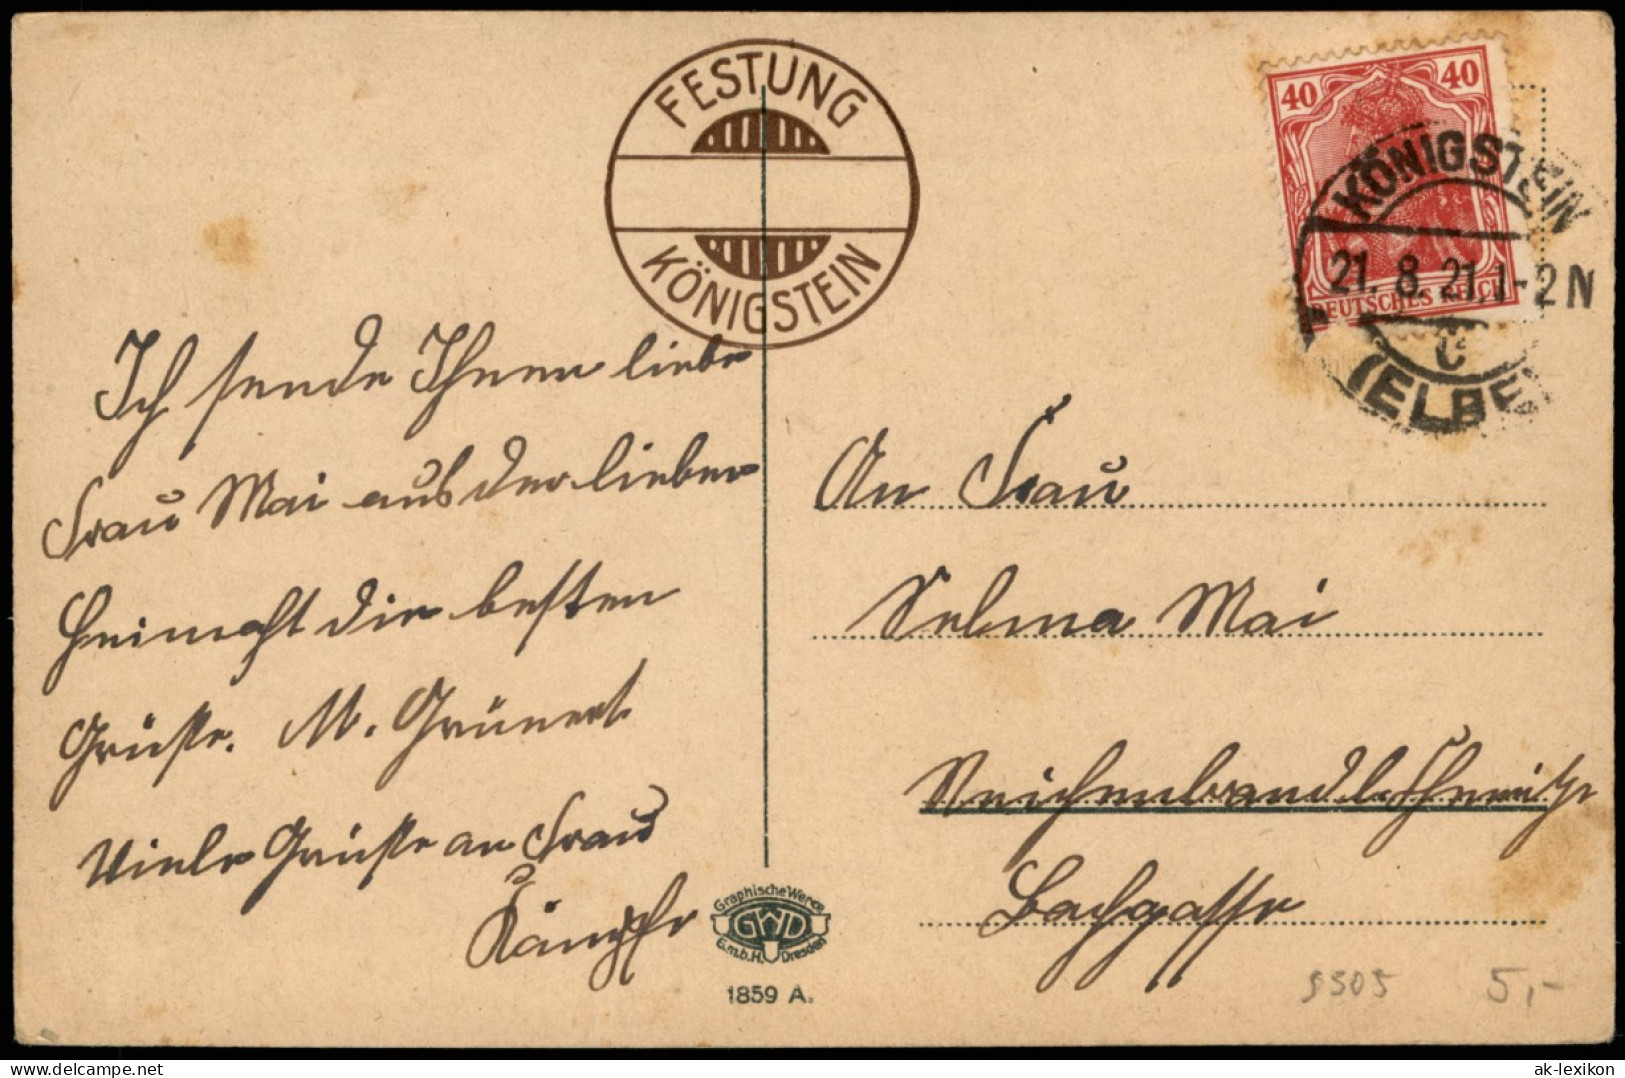 FESTUNG
KÖNIGSTEIN
40 40
DEUTSCHES REICH
KÖNIGSTEIN
21. 8. 21. 1-2 N
c
(ELBE)
Ich sende Ihnen liebe
Frau Mai aus der lieben
Heimaht die besten
Grüße. M. Grünert
Viele Grüße an Frau
Kämpfe
An Frau
Selma Mai
Reichenbrand b. Chemnitz
Bachgasse
Graphische Werke
GWD
G.m.b.H. Dresden
1859 A.
9505 5,-
ak-lexikon.com